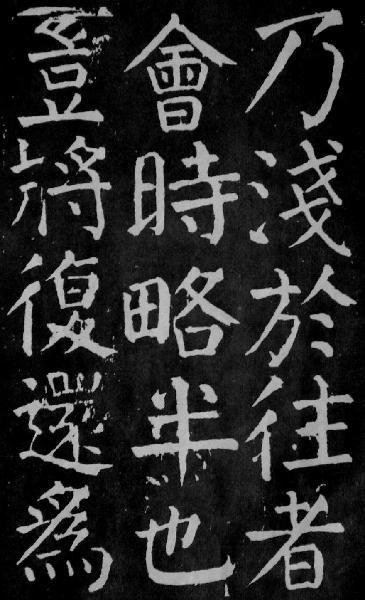 乃淺於往者
會時略半也
豈將復還爲